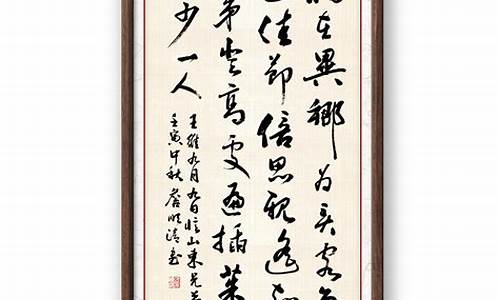 在異鄉为異客每
逢佳節倍思親遙知
弟登高處遍插茱
少一人
王維九月九日憶山東兄弟
壬寅中秋